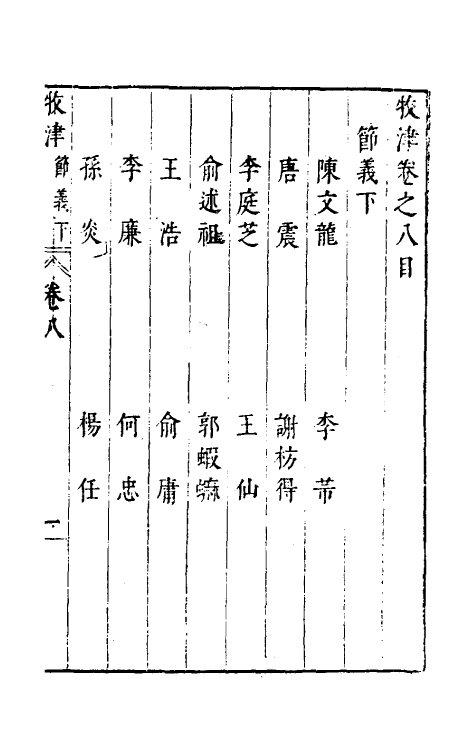 牧津卷之八目
節義下
陳文龍 李芾
唐震 謝枋得
李庭芝 王仙
俞述祖 郭蝦蟆
王浩 俞庸
李廉 何忠
孫炎 楊任
牧津 節義下 卷八 一